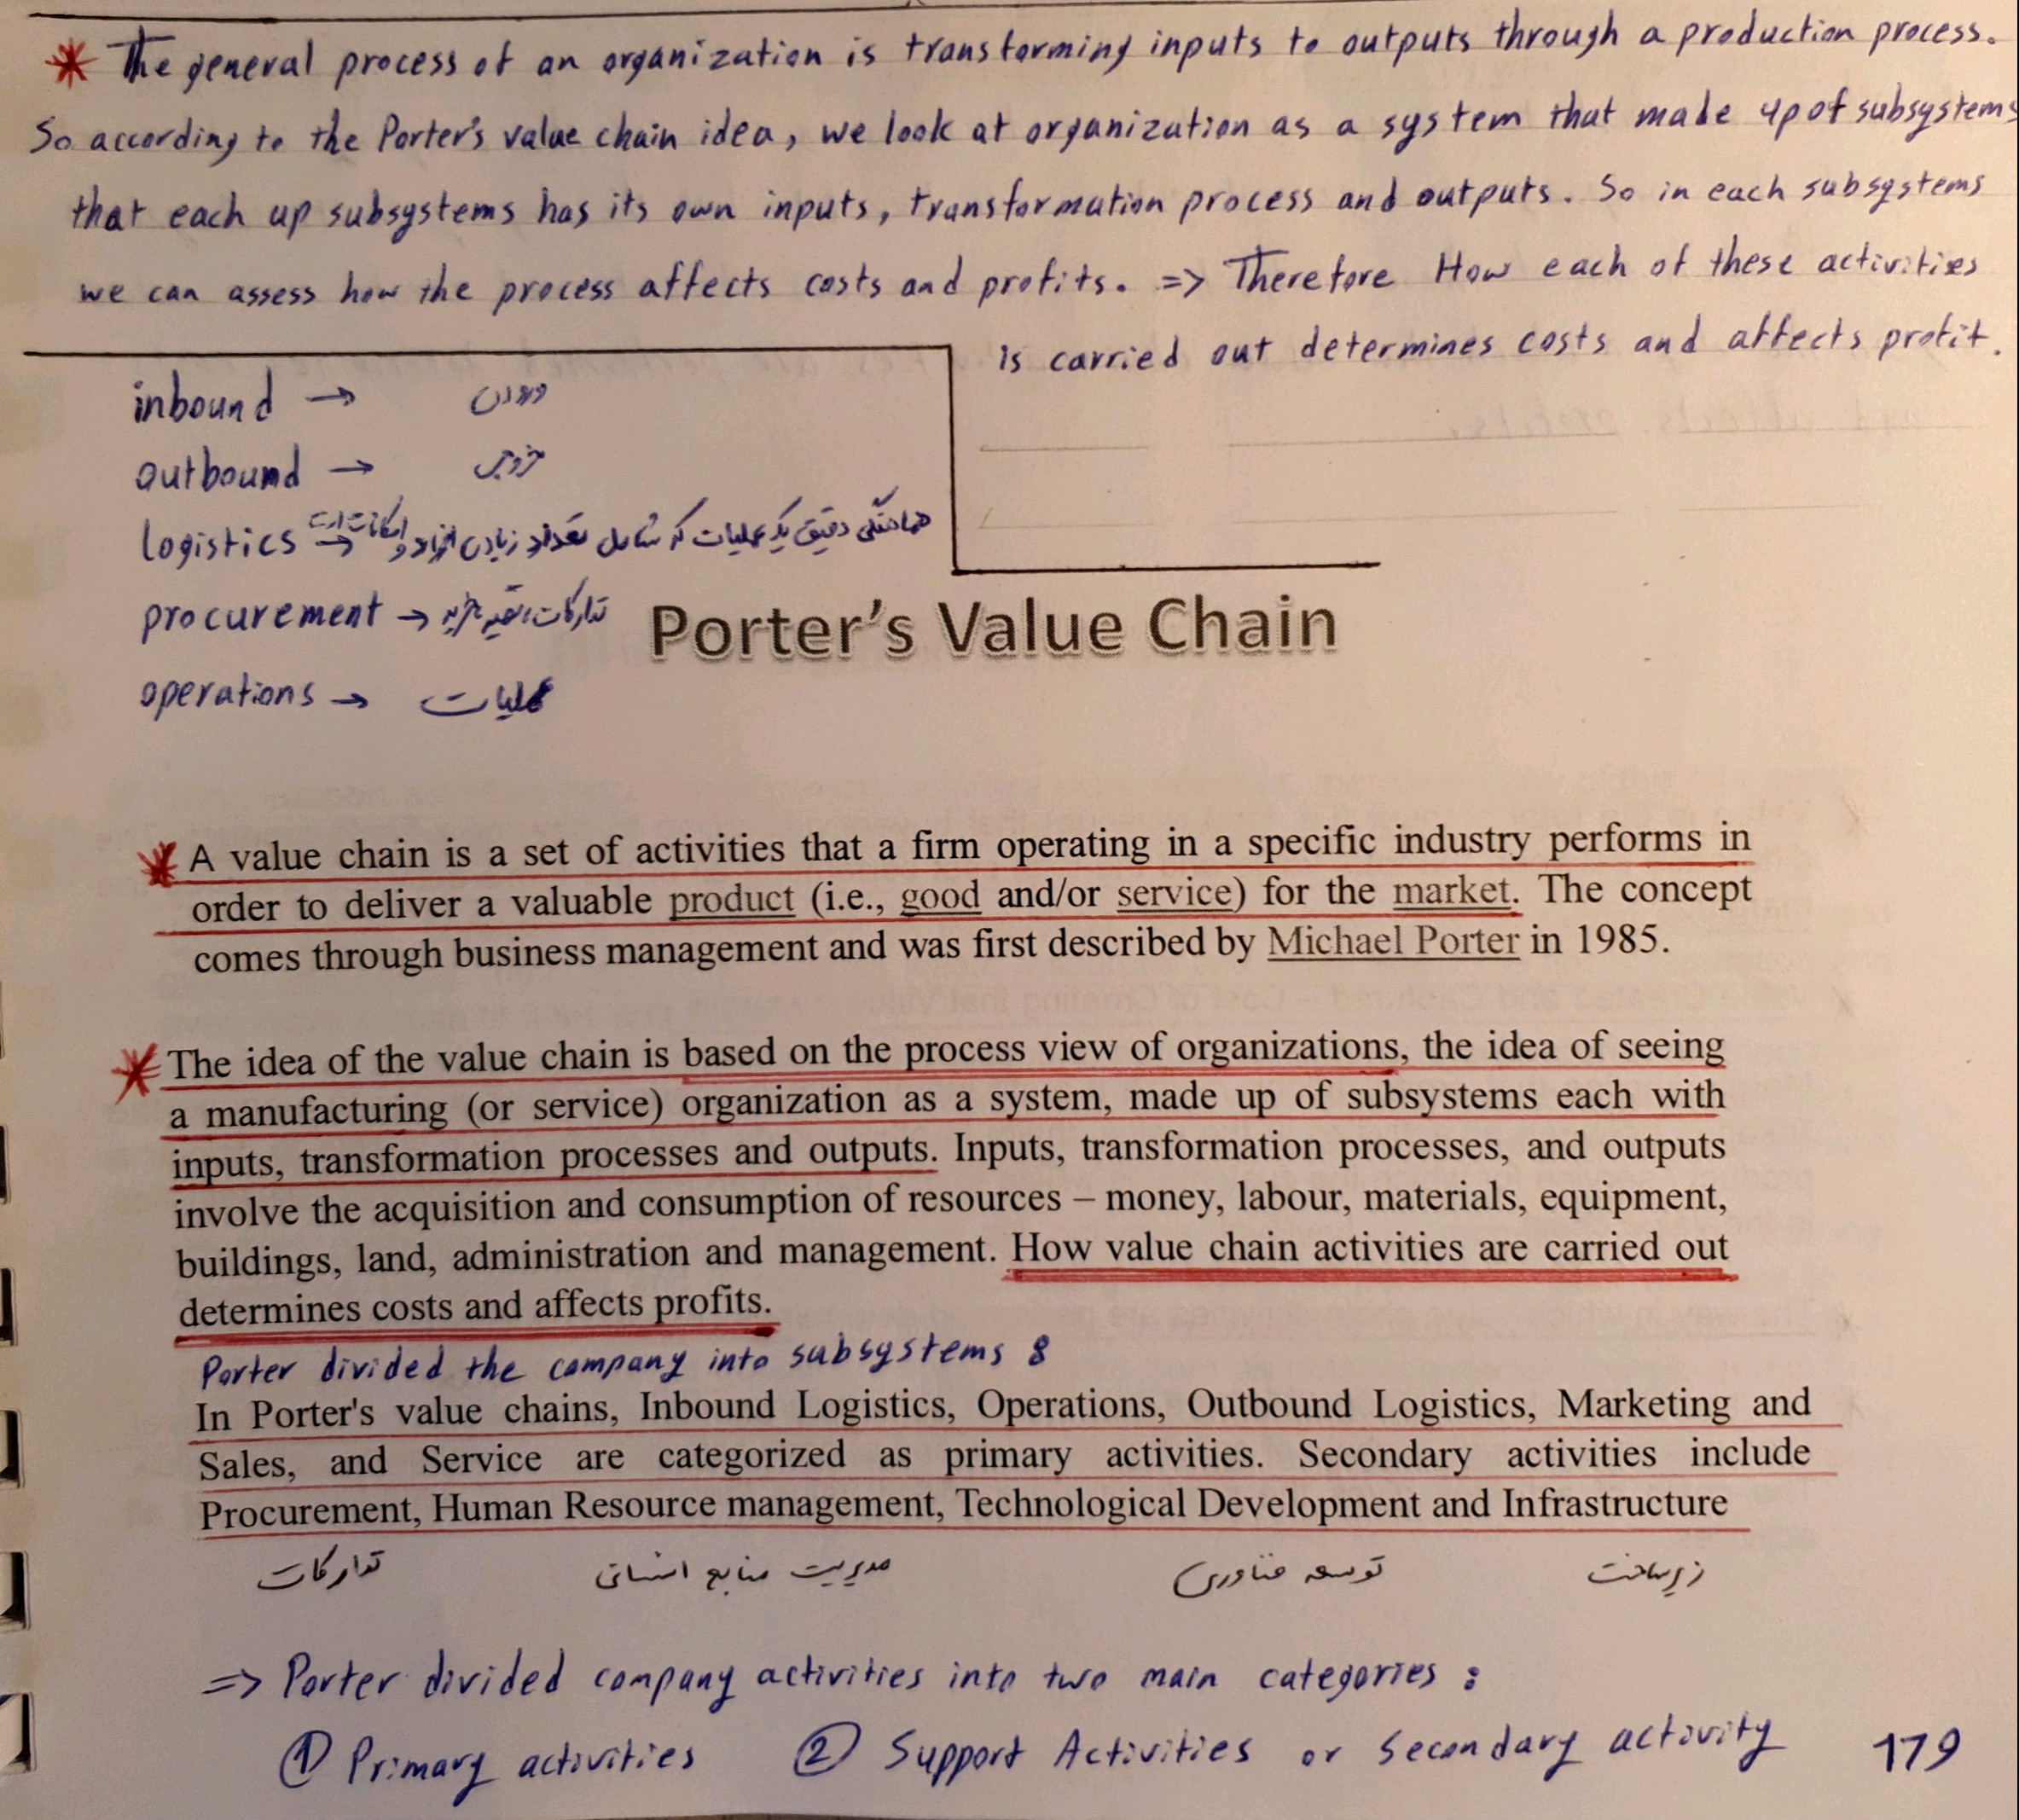 * The general process of an organization is transforming inputs to outputs through a production process.
So according to the Porter's value chain idea, we look at organization as a system that made up of subsystems
that each up subsystems has its own inputs, transformation process and outputs. So in each subsystems
we can assess how the process affects costs and profits. => Therefore How each of these activities
is carried out determines costs and affects profit.
inbound →
outbound → خروجی
logistics → هماهنگی دقیق یک عملیات که شامل تعداد زیادی افراد و امکانات است
procurement → تدارکات،
operations → عملیات
Porter's Value Chain
* A value chain is a set of activities that a firm operating in a specific industry performs in
order to deliver a valuable product (i.e., good and/or service) for the market. The concept
comes through business management and was first described by Michael Porter in 1985.
* The idea of the value chain is based on the process view of organizations, the idea of seeing
a manufacturing (or service) organization as a system, made up of subsystems each with
inputs, transformation processes and outputs. Inputs, transformation processes, and outputs
involve the acquisition and consumption of resources – money, labour, materials, equipment,
buildings, land, administration and management. How value chain activities are carried out
determines costs and affects profits.
Porter divided the company into subsystems :
In Porter's value chains, Inbound Logistics, Operations, Outbound Logistics, Marketing and
Sales, and Service are categorized as primary activities. Secondary activities include
Procurement, Human Resource management, Technological Development and Infrastructure
تدارکات مدیریت منابع انسانی توسعه فناوری زیرساخت
=> Porter divided company activities into two main categories :
① Primary activities ② Support Activities or Secondary activity
179